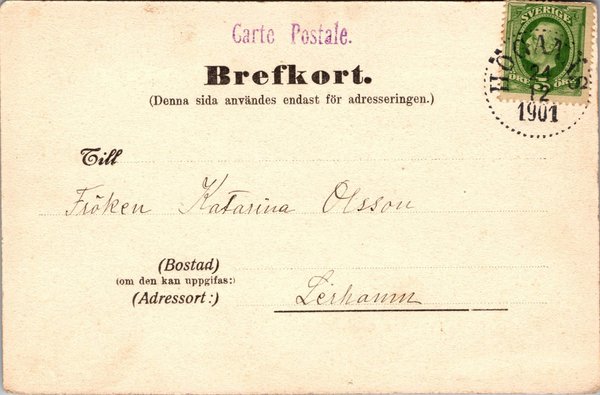 Carte Postale.
SVERIGE
Brefkort.
(Denna sida användes endast för adresseringen.)
HÖGANÄS
24
12
1901
Till
Fröken Katarina Olsson
(Bostad)
(om den kan uppgifvas:)
(Adressort:)
Lerhamn